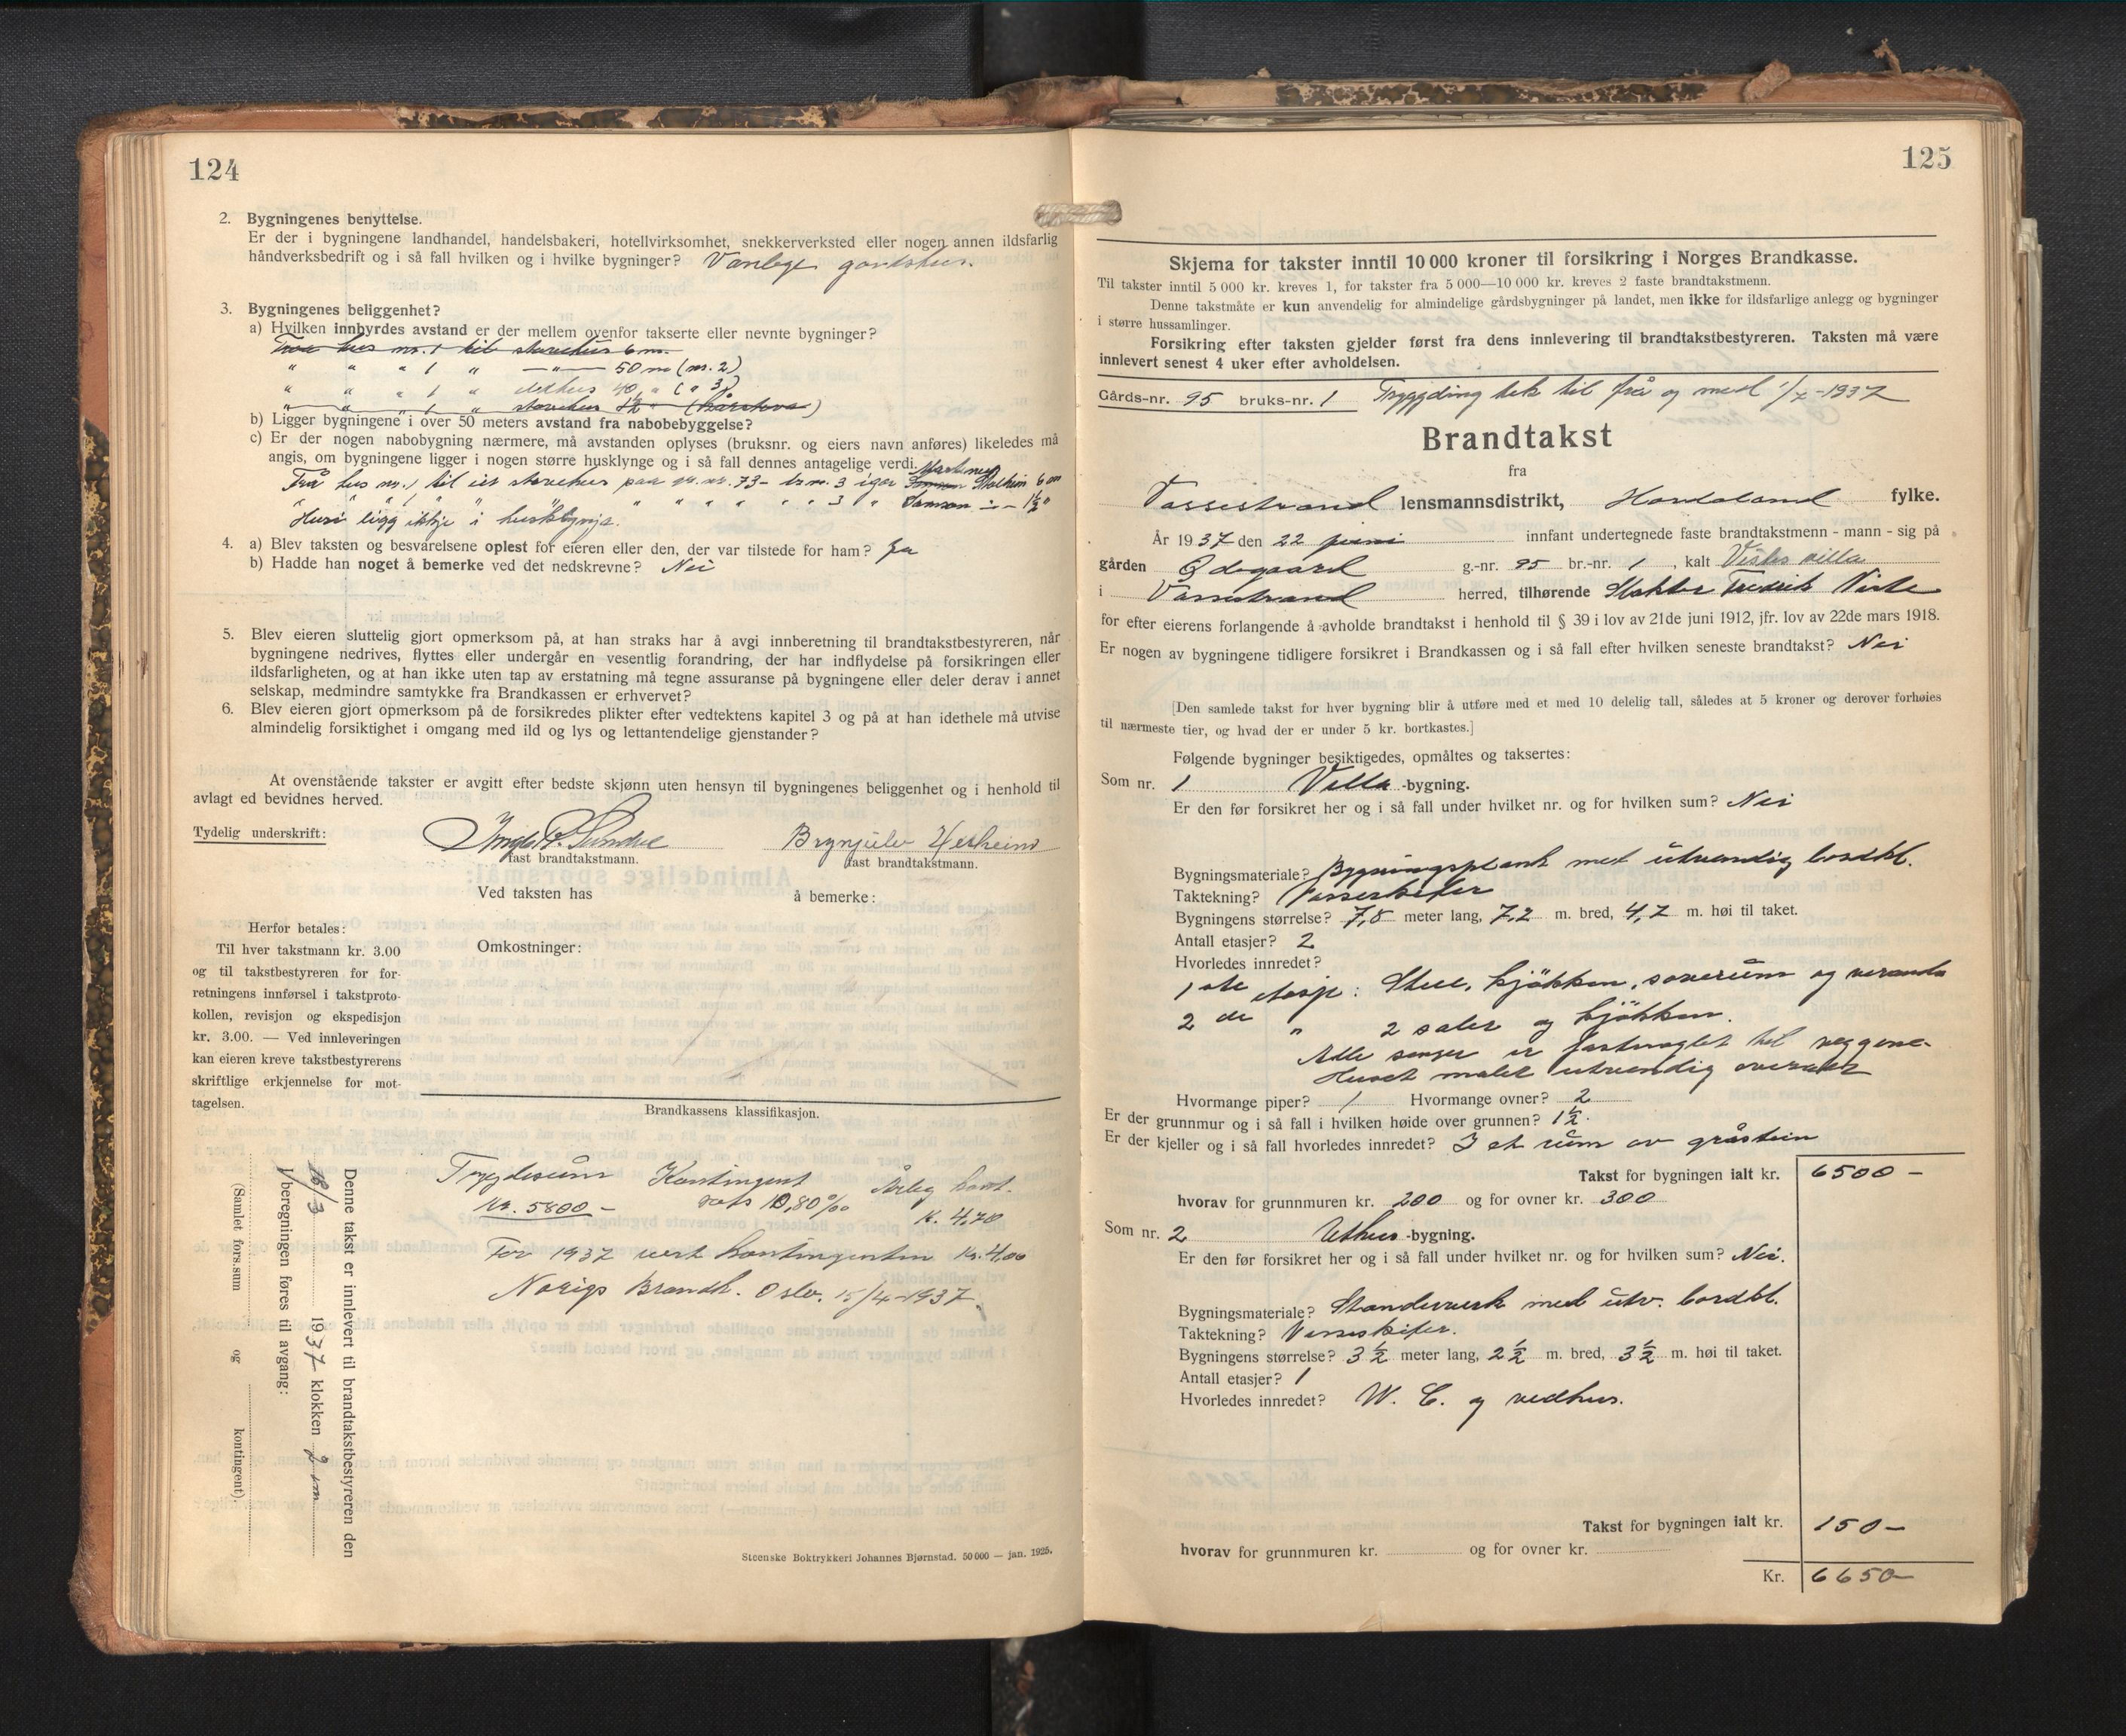 124
2. Bygningenes benyttelse.
Er der i bygningene landhandel, handelsbakeri, hotellvirksomhet, snekkerverksted eller nogen annen ildsfarlig
håndverksbedrift og i så fall hvilken og i hvilke bygninger? Vanlege gardshus.
3. Bygningenes beliggenhet?
a) Hvilken innbyrdes avstand er der mellem ovenfor takserte eller nevnte bygninger?
Frå hus nr. 1 til storehus 6 m.
" " " 1 " —"— 50 m (nr. 2)
" " " 1 " eldhus 40 " (" 3)
" " " 1 " storehus 1½ " (kårstova)
b) Ligger bygningene i over 50 meters avstand fra nabobebyggelse?
c) Er der nogen nabobygning nærmere, må avstanden oplyses (bruksnr. og eiers navn anføres) likeledes må
angis, om bygningene ligger i nogen større husklynge og i så fall dennes antagelige verdi.
Frå hus nr. 1 til eit storehus paa gr. nr. 73 - br.nr. 3 igar Stalheim 6 m
" " " " " " " " " 3 " Samson — " — 1½ "
Husi ligg ikkje i husklynja.
4. a) Blev taksten og besvarelsene oplest for eieren eller den, der var tilstede for ham? Ja
b) Hadde han noget å bemerke ved det nedskrevne? Nei
5. Blev eieren sluttelig gjort opmerksom på, at han straks har å avgi innberetning til brandtakstbestyreren, når
bygningene nedrives, flyttes eller undergår en vesentlig forandring, der har indflydelse på forsikringen eller
ildsfarligheten, og at han ikke uten tap av erstatning må tegne assuranse på bygningene eller deler derav i annet
selskap, medmindre samtykke fra Brandkassen er erhvervet?
6. Blev eieren gjort opmerksom på de forsikredes plikter efter vedtektens kapitel 3 og på at han idethele må utvise
almindelig forsiktighet i omgang med ild og lys og lettantendelige gjenstander?
At ovenstående takster er avgitt efter bedste skjønn uten hensyn til bygningenes beliggenhet og i henhold til
avlagt ed bevidnes herved.
Tydelig underskrift: Brynjulv Helheim
fast brandtakstmann. fast brandtakstmann.
Ved taksten has å bemerke:
Herfor betales:
Til hver takstmann kr. 3.00
og til takstbestyreren for for-
retningens innførsel i takstproto-
kollen, revisjon og ekspedisjon
kr. 3.00. — Ved innleveringen
kan eieren kreve takstbestyrerens
skriftlige erkjennelse for mot-
tagelsen.
Omkostninger:
Brandkassens klassifikasjon.
Trygdesum Kontingent Årleg kont.
Kr. 5800 - sats 0,80 ‰ K. 4,70
For 1937 vert kontingenten Kr. 4,00
Norigs Brandk. Oslo. 15/4-1937.
Denne takst er innlevert til brandtakstbestyreren den
18/3 1937 klokken 2 em
I beregningen føres til avgang:
(Samlet fors.sum og kontingent)
Steenske Boktrykkeri Johannes Bjørnstad. 50 000 — jan. 1925.
125
Skjema for takster inntil 10 000 kroner til forsikring i Norges Brandkasse.
Til takster inntil 5 000 kr. kreves 1, for takster fra 5 000—10 000 kr. kreves 2 faste brandtakstmenn.
Denne takstmåte er kun anvendelig for almindelige gårdsbygninger på landet, men ikke for ildsfarlige anlegg og bygninger
i større hussamlinger.
Forsikring efter taksten gjelder først fra dens innlevering til brandtakstbestyreren. Taksten må være
innlevert senest 4 uker efter avholdelsen.
Gårds-nr. 95 bruks-nr. 1 Tryggding tek til frå og med 1/7-1937
Brandtakst
fra
Vossestrand lensmannsdistrikt, Hordaland fylke.
År 1937 den 22 juni innfant undertegnede faste brandtakstmenn - mann - sig på
gården Ødegaard g.-nr. 95 br.-nr. 1, kalt Vistes villa
i Vossestrand herred, tilhørende Fredrik Viste
for efter eierens forlangende å avholde brandtakst i henhold til § 39 i lov av 21de juni 1912, jfr. lov av 22de mars 1918.
Er nogen av bygningene tidligere forsikret i Brandkassen og i så fall efter hvilken seneste brandtakst? Nei
[Den samlede takst for hver bygning blir å utføre med et med 10 delelig tall, således at 5 kroner og derover forhøies
til nærmeste tier, og hvad der er under 5 kr. bortkastes.]
Følgende bygninger besiktigedes, opmåltes og taksertes:
Som nr. 1 Villa -bygning.
Er den før forsikret her og i så fall under hvilket nr. og for hvilken sum? Nei
Bygningsmateriale? Bygningsplank med utvendig bordkl.
Taktekning? Vosseskifer
Bygningens størrelse? 7,8 meter lang, 7,2 m. bred, 4,7 m. høi til taket.
Antall etasjer? 2
Hvorledes innredet?
1ste etasje: Stue, kjøkken, soverum og veranda
2de " 2 saler og kjøkken.
Alle senger er fastnaglet til veggene.
Huset malet utvendig overalt
Hvormange piper? 1 Hvormange ovner? 2
Er der grunnmur og i så fall i hvilken høide over grunnen? 1½.
Er der kjeller og i så fall hvorledes innredet? I et rum av gråstein
Takst for bygningen ialt kr. 6500 -
hvorav for grunnmuren kr. 200 og for ovner kr. 300
Som nr. 2 Uthus -bygning.
Er den før forsikret her og i så fall under hvilket nr. og for hvilken sum? Nei.
Bygningsmateriale? Standerverk med utv. bordkl.
Taktekning? Vosseskifer.
Bygningens størrelse? 3½ meter lang, 2½ m. bred, 3½ m. høi til taket.
Antall etasjer? 1
Hvorledes innredet? W. C. og vedhus.
Takst for bygningen ialt kr. 150 -
hvorav for grunnmuren kr. og for ovner kr.
Kr. 6650 -